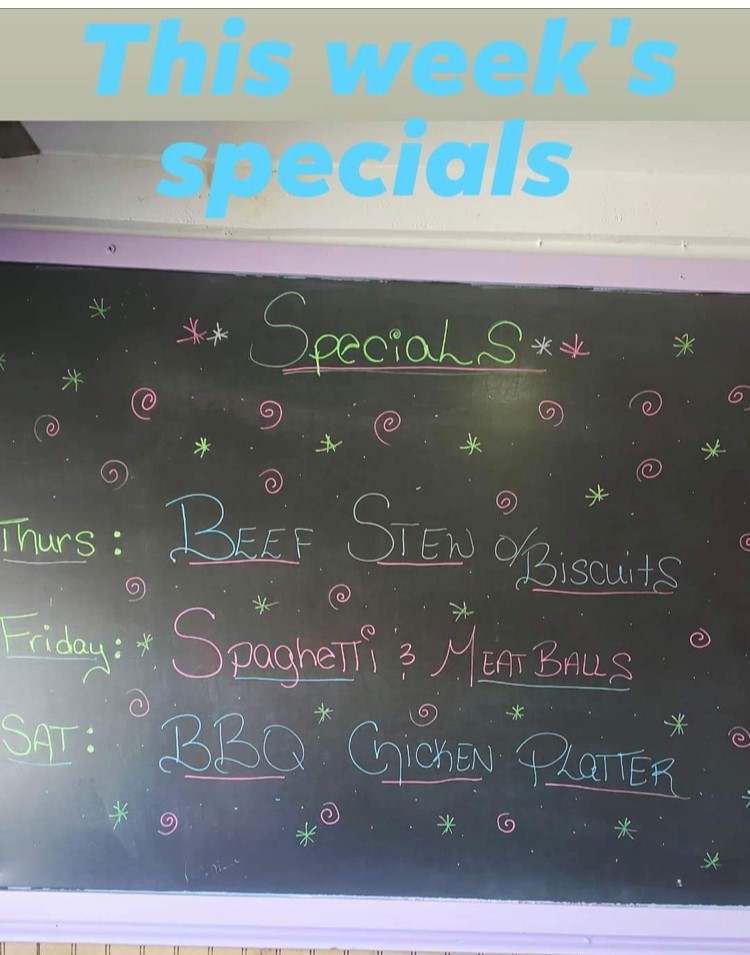 This week's
specials
SpecialS
Thurs: BEEF STEW o/Biscuits
Friday: SpagheTTi & MEAT BALLS
SAT: BBQ CHiCKEN PLaTTER